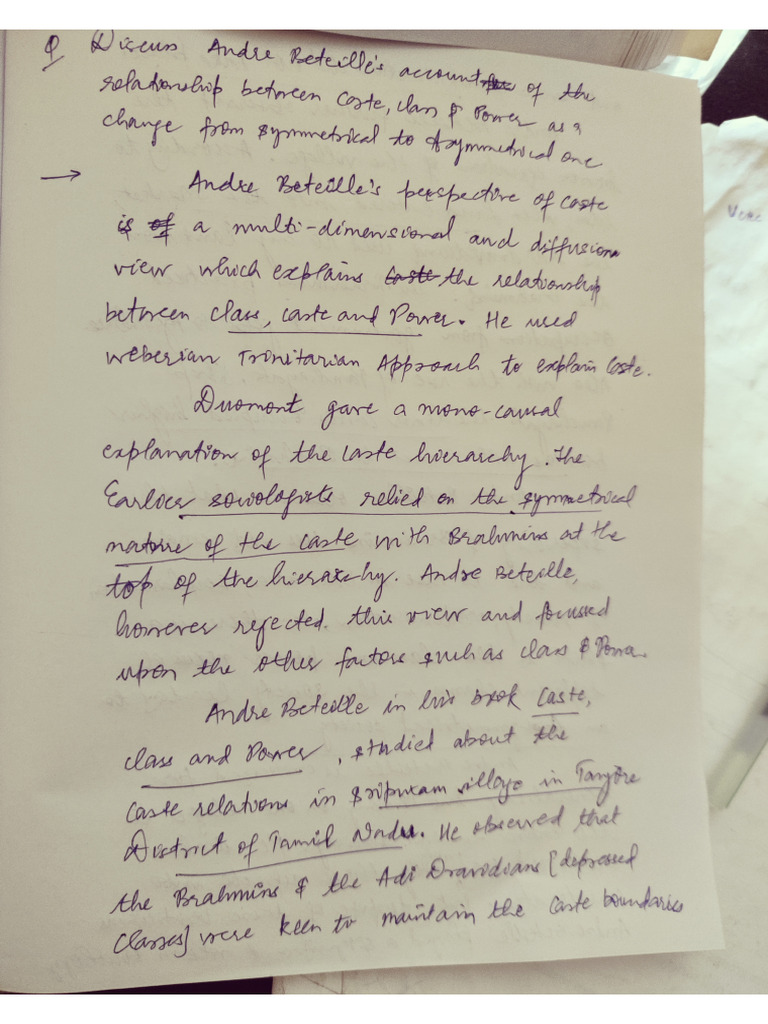 Q Discuss Andre Beteille's account of the
relationship between Caste, class & Power as a
change from symmetrical to Asymmetrical one
→ Andre Beteille's perspective of caste
is a multi-dimensional and diffusion
view which explains the relationship
between class, caste and Power. He used
weberian Trinitarian Approach to explain Caste.
Duomont gave a mono-causal
explanation of the caste hierarchy. The
Earlier sociologists relied on the symmetrical
nature of the caste with Brahmins at the
top of the hierarchy. Andre Beteille,
however rejected this view and focussed
upon the other factors such as class & Power.
Andre Beteille in his book Caste,
class and Power, studied about the
caste relations in Sripuram village in Tanjore
District of Tamil Nadu. He observed that
the Brahmins & the Adi Dravidians [depressed
classes] were keen to maintain the caste boundaries